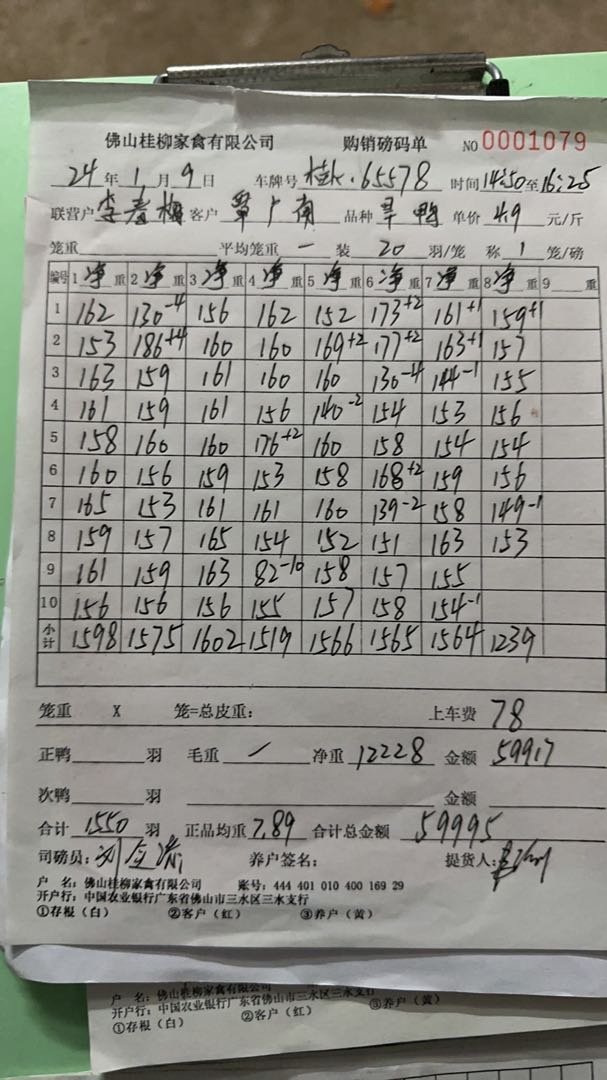 佛山桂柳家禽有限公司 购销磅码单 NO 0001079
24 年 1 月 9 日 车牌号 桂K·65578 时间 14:50 至 16:25
联营户 李春梅 客户 覃广南 品种 旱鸭 单价 4.9 元/斤
笼重 平均笼重 — 装 20 羽/笼 称 1 笼/磅
编号 1 净 重 2 净 重 3 净 重 4 净 重 5 净 重 6 净 重 7 净 重 8 净 重 9 重
1 162 130-4 156 162 152 173+2 161+1 159+1
2 153 186+4 160 160 169+2 177+2 163+1 157
3 163 159 161 160 160 130-4 144-1 155
4 161 159 161 156 140-2 154 153 156
5 158 160 160 176+2 160 158 154 154
6 160 156 159 153 158 168+2 159 156
7 165 153 161 161 160 139-2 158 149-1
8 159 157 165 154 152 151 163 153
9 161 159 163 82-10 158 157 155
10 156 156 156 155 157 158 154-1
小计 1598 1575 1602 1519 1566 1565 1564 1239
笼重 X 笼=总皮重： 上车费 78
正鸭 羽 毛重 / 净重 12228 金额 59917
次鸭 羽 金额
合计 1550 羽 正品均重 7.89 合计总金额 59995
司磅员： 养户签名： 提货人：
户 名：佛山桂柳家禽有限公司 账号：444 401 010 400 169 29
开户行：中国农业银行广东省佛山市三水区三水支行
①存根（白） ②客户（红） ③养户（黄）
户 名：佛山桂柳家禽有限公司
开户行：中国农业银行广东省佛山市三水区三水支行
①存根（白） ②客户（红） ③养户（黄）